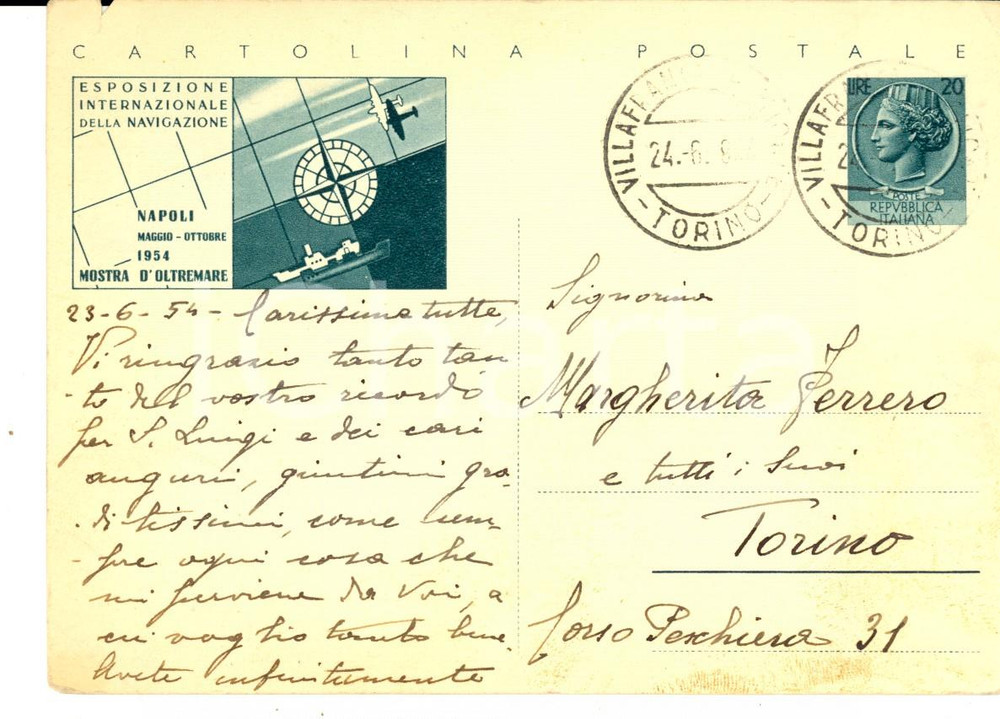 CARTOLINA POSTALE
ESPOSIZIONE
INTERNAZIONALE
DELLA NAVIGAZIONE
NAPOLI
MAGGIO - OTTOBRE
1954
MOSTRA D'OLTREMARE
VILLAFRAN
24.-6.
- TORINO -
VILLAFR
2
- TORINO
LIRE 20
POSTE
REPVBBLICA
ITALIANA
23-6-54 - Carissime tutte,
Vi ringrazio tanto tan-
- to del vostro ricordo
per S. Luigi e dei cari
auguri, giuntimi gra-
- ditissimi, come sem-
- pre ogni cosa che
mi perviene da Voi, a
cui voglio tanto bene.
Avete infinitamente
Signorina
Margherita Ferrero
e tutti i Suoi
Torino
Corso Peschiera 31